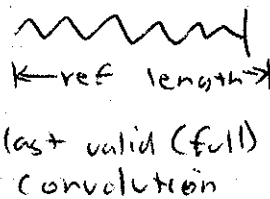 ref length
last valid (full)
convolution